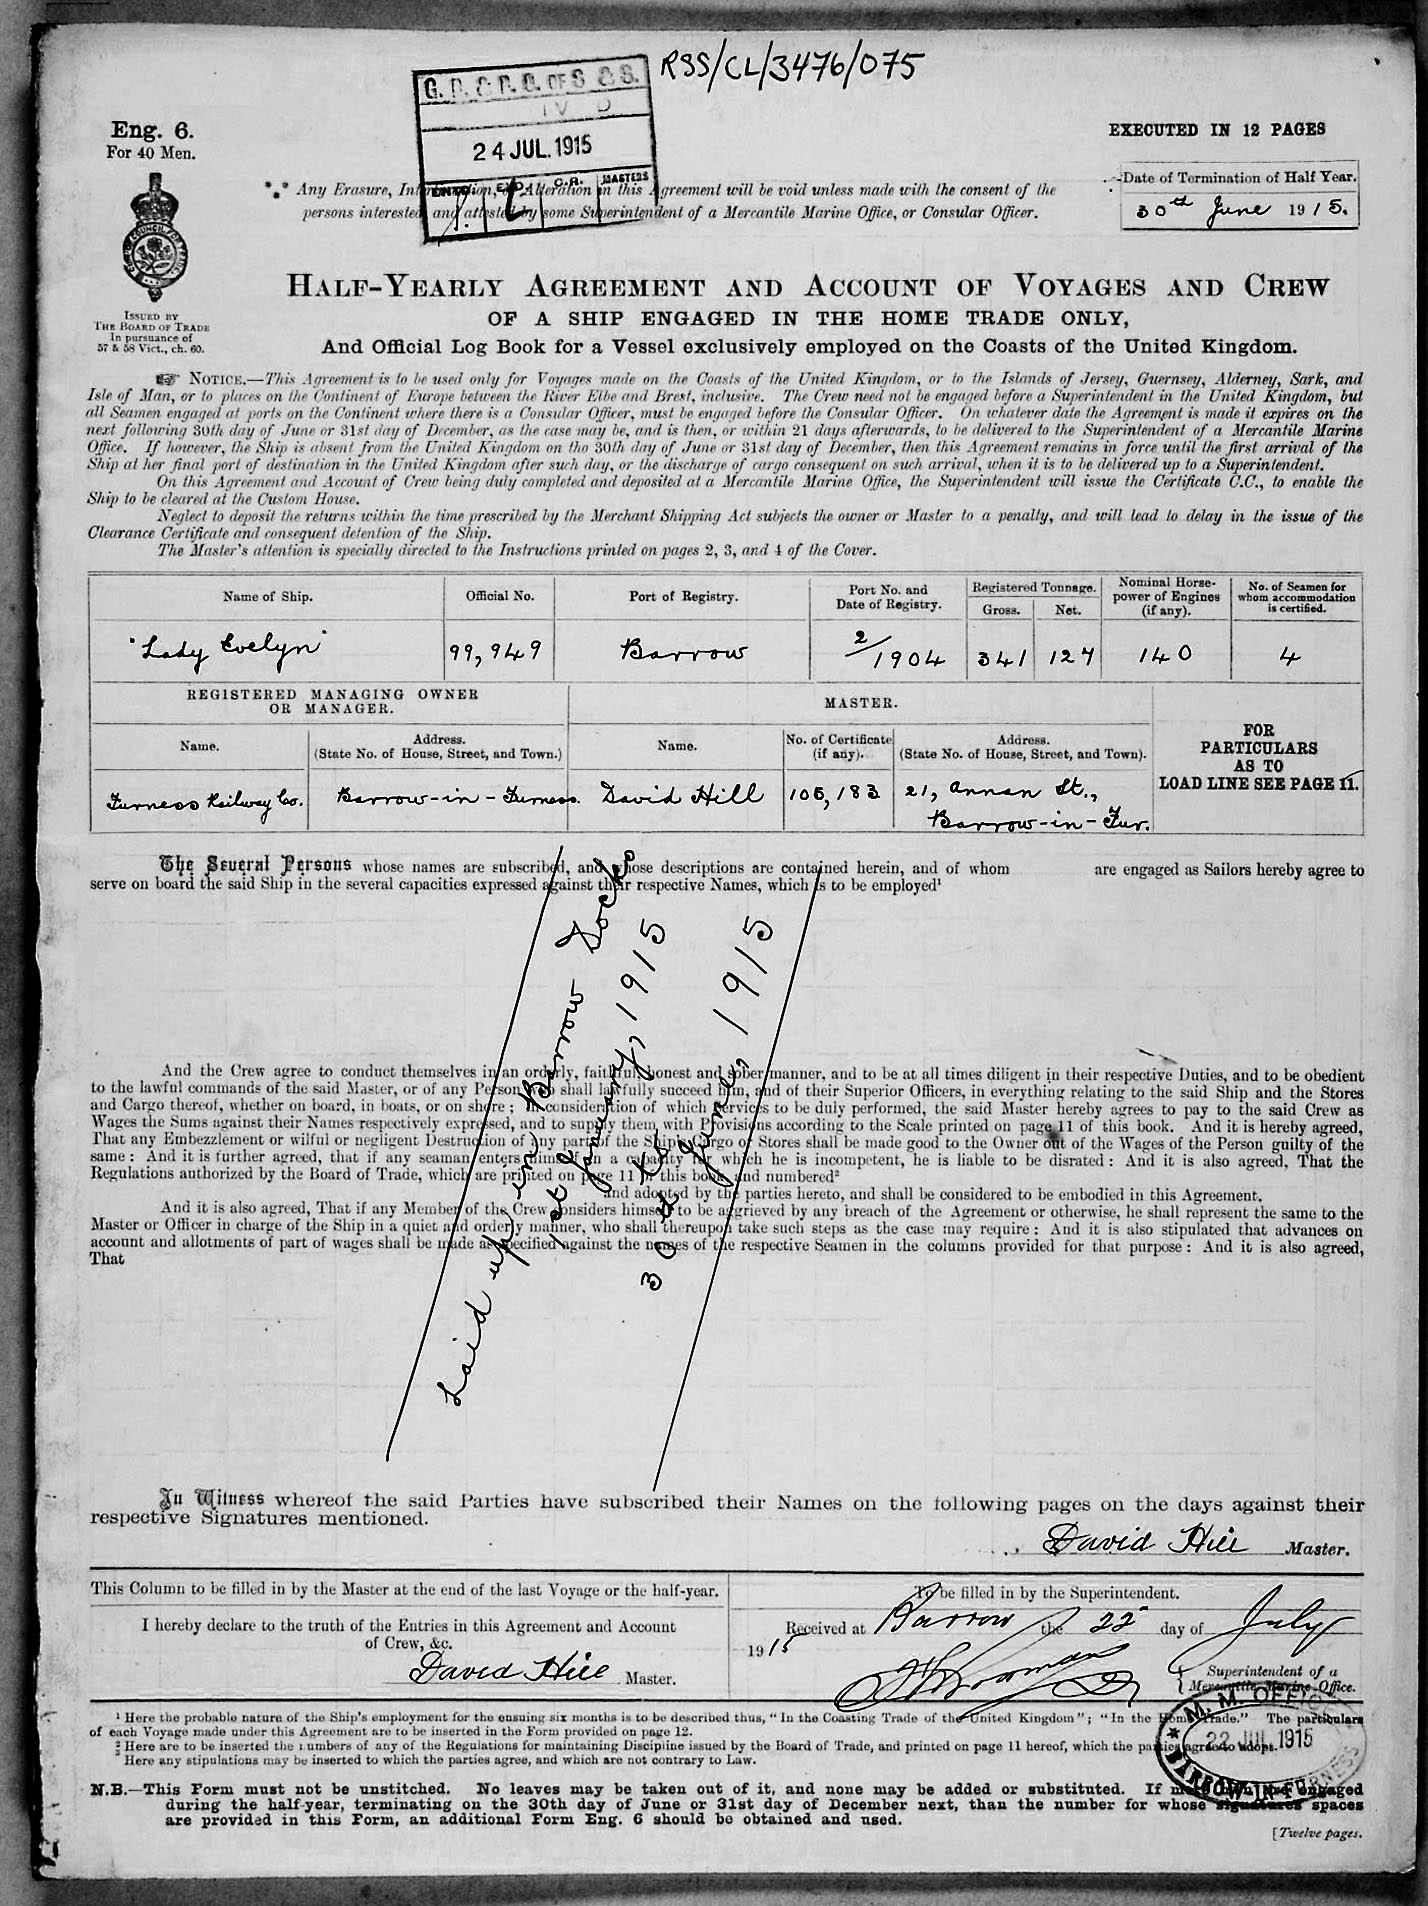 RSS/CL/3476/075
G.R. & R.G. OF S & S.
24 JUL. 1915
C.R. MASTERS
Eng. 6.
For 40 Men.
EXECUTED IN 12 PAGES
Any Erasure, Interlineation, or Alteration in this Agreement will be void unless made with the consent of the
persons interested, and attested by some Superintendent of a Mercantile Marine Office, or Consular Officer.
Date of Termination of Half Year.
30th June 1915.
ISSUED BY
THE BOARD OF TRADE
In pursuance of
57 & 58 Vict., ch. 60.
HALF-YEARLY AGREEMENT AND ACCOUNT OF VOYAGES AND CREW
OF A SHIP ENGAGED IN THE HOME TRADE ONLY,
And Official Log Book for a Vessel exclusively employed on the Coasts of the United Kingdom.
NOTICE.—This Agreement is to be used only for Voyages made on the Coasts of the United Kingdom, or to the Islands of Jersey, Guernsey, Alderney, Sark, and
Isle of Man, or to places on the Continent of Europe between the River Elbe and Brest, inclusive. The Crew need not be engaged before a Superintendent in the United Kingdom, but
all Seamen engaged at ports on the Continent where there is a Consular Officer, must be engaged before the Consular Officer. On whatever date the Agreement is made it expires on the
next following 30th day of June or 31st day of December, as the case may be, and is then, or within 21 days afterwards, to be delivered to the Superintendent of a Mercantile Marine
Office. If however, the Ship is absent from the United Kingdom on the 30th day of June or 31st day of December, then this Agreement remains in force until the first arrival of the
Ship at her final port of destination in the United Kingdom after such day, or the discharge of cargo consequent on such arrival, when it is to be delivered up to a Superintendent.
On this Agreement and Account of Crew being duly completed and deposited at a Mercantile Marine Office, the Superintendent will issue the Certificate C.C., to enable the
Ship to be cleared at the Custom House.
Neglect to deposit the returns within the time prescribed by the Merchant Shipping Act subjects the owner or Master to a penalty, and will lead to delay in the issue of the
Clearance Certificate and consequent detention of the Ship.
The Master's attention is specially directed to the Instructions printed on pages 2, 3, and 4 of the Cover.
Name of Ship. Official No. Port of Registry. Port No. and Date of Registry. Registered Tonnage. Gross. Net. Nominal Horse-power of Engines (if any). No. of Seamen for whom accommodation is certified.
"Lady Evelyn" 99,949 Barrow 2/1904 341 127 140 4
REGISTERED MANAGING OWNER
OR MANAGER.
MASTER.
Name. Address. (State No. of House, Street, and Town.) Name. No. of Certificate (if any). Address. (State No. of House, Street, and Town).
FOR
PARTICULARS
AS TO
LOAD LINE SEE PAGE 11.
Furness Railway Co. Barrow-in-Furness. David Hill 105,183 21, Annan St.,
Barrow-in-Fur.
The Several Persons whose names are subscribed, and whose descriptions are contained herein, and of whom are engaged as Sailors hereby agree to
serve on board the said Ship in the several capacities expressed against their respective Names, which is to be employed¹
Laid up in Barrow Docks
1st January, 1915
to
30th June, 1915
And the Crew agree to conduct themselves in an orderly, faithful, honest and sober manner, and to be at all times diligent in their respective Duties, and to be obedient
to the lawful commands of the said Master, or of any Person who shall lawfully succeed him, and of their Superior Officers, in everything relating to the said Ship and the Stores
and Cargo thereof, whether on board, in boats, or on shore; in consideration of which Services to be duly performed, the said Master hereby agrees to pay to the said Crew as
Wages the Sums against their Names respectively expressed, and to supply them with Provisions according to the Scale printed on page 11 of this book. And it is hereby agreed,
That any Embezzlement or wilful or negligent Destruction of any part of the Ship's Cargo or Stores shall be made good to the Owner out of the Wages of the Person guilty of the
same: And it is further agreed, that if any seaman enters himself in a capacity for which he is incompetent, he is liable to be disrated: And it is also agreed, That the
Regulations authorized by the Board of Trade, which are printed on page 11 of this book and numbered²
and adopted by the parties hereto, and shall be considered to be embodied in this Agreement.
And it is also agreed, That if any Member of the Crew considers himself to be aggrieved by any breach of the Agreement or otherwise, he shall represent the same to the
Master or Officer in charge of the Ship in a quiet and orderly manner, who shall thereupon take such steps as the case may require: And it is also stipulated that advances on
account and allotments of part of wages shall be made as specified against the names of the respective Seamen in the columns provided for that purpose: And it is also agreed,
That
In Witness whereof the said Parties have subscribed their Names on the following pages on the days against their
respective Signatures mentioned.
David Hill Master.
This Column to be filled in by the Master at the end of the last Voyage or the half-year.
I hereby declare to the truth of the Entries in this Agreement and Account
of Crew, &c.
David Hill Master.
To be filled in by the Superintendent.
Received at Barrow the 22 day of July
1915
Superintendent of a
Mercantile Marine Office.
M. M. OFFICE
22 JUL 1915
BARROW-IN-FURNESS
¹ Here the probable nature of the Ship's employment for the ensuing six months is to be described thus, "In the Coasting Trade of the United Kingdom"; "In the Home Trade." The particulars
of each Voyage made under this Agreement are to be inserted in the Form provided on page 12.
² Here are to be inserted the numbers of any of the Regulations for maintaining Discipline issued by the Board of Trade, and printed on page 11 hereof, which the parties agree to adopt.
³ Here any stipulations may be inserted to which the parties agree, and which are not contrary to Law.
N.B.—This Form must not be unstitched. No leaves may be taken out of it, and none may be added or substituted. If more men are engaged
during the half-year, terminating on the 30th day of June or 31st day of December next, than the number for whose signatures spaces
are provided in this Form, an additional Form Eng. 6 should be obtained and used.
[Twelve pages.